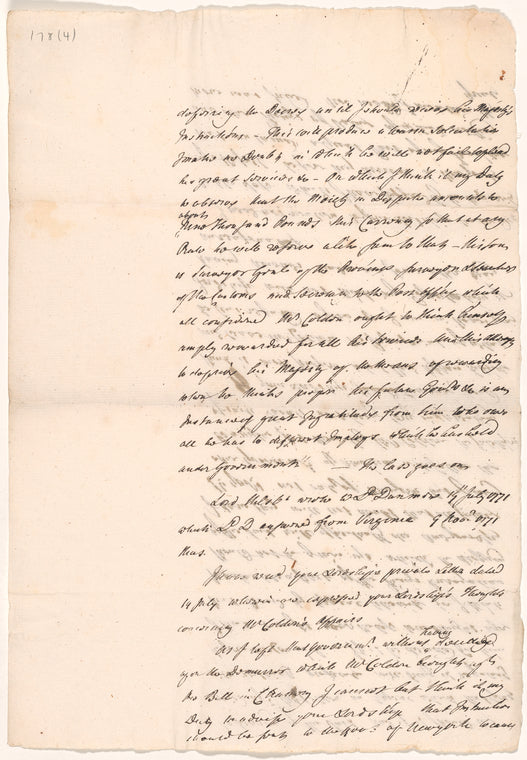 178(4)
defering the Decree until I should receive his Majesty's
Instructions - This will produce a warm Solicitation
I make no Doubt, in which he will not fail to plead
his great Services &c - On which I think it my Duty
to observe that the Moiety in Dispute amounts to
about
Nine Thousand Pounds this Currency so that at any
Rate he will receive a like Sum to that - His son
is Surveyor Genl of the Province, Surveyor &
of the Customs and Secretary to the Post Office, which
all considered Mr Colden ought to think himself
amply rewarded for all his Services
to deprive his Majesty of the Means of rewarding
whom he thinks proper his future Govrs &c is an
Instance of great Ingratitude from him who owes
all he has to different Employs which he has held
under Government" — He has goes on
Lord Hilsbh wrote to Ld Dunmore 14 July 1771
which Ld D answered from Virginia 9 Novr 1771
thus.
I have recd your Lordship's private Letter dated
14 July wherein are expressed your Lordship's Thoughts
concerning Mr Colden's Affairs
As I left that Governmt without having decided
upon the Demurrer which Mr Colden brought
the Bill in Chancery I cannot but think it my
Duty to advise your Lordship that Instructions
should be sent to the Govr of New York to cause